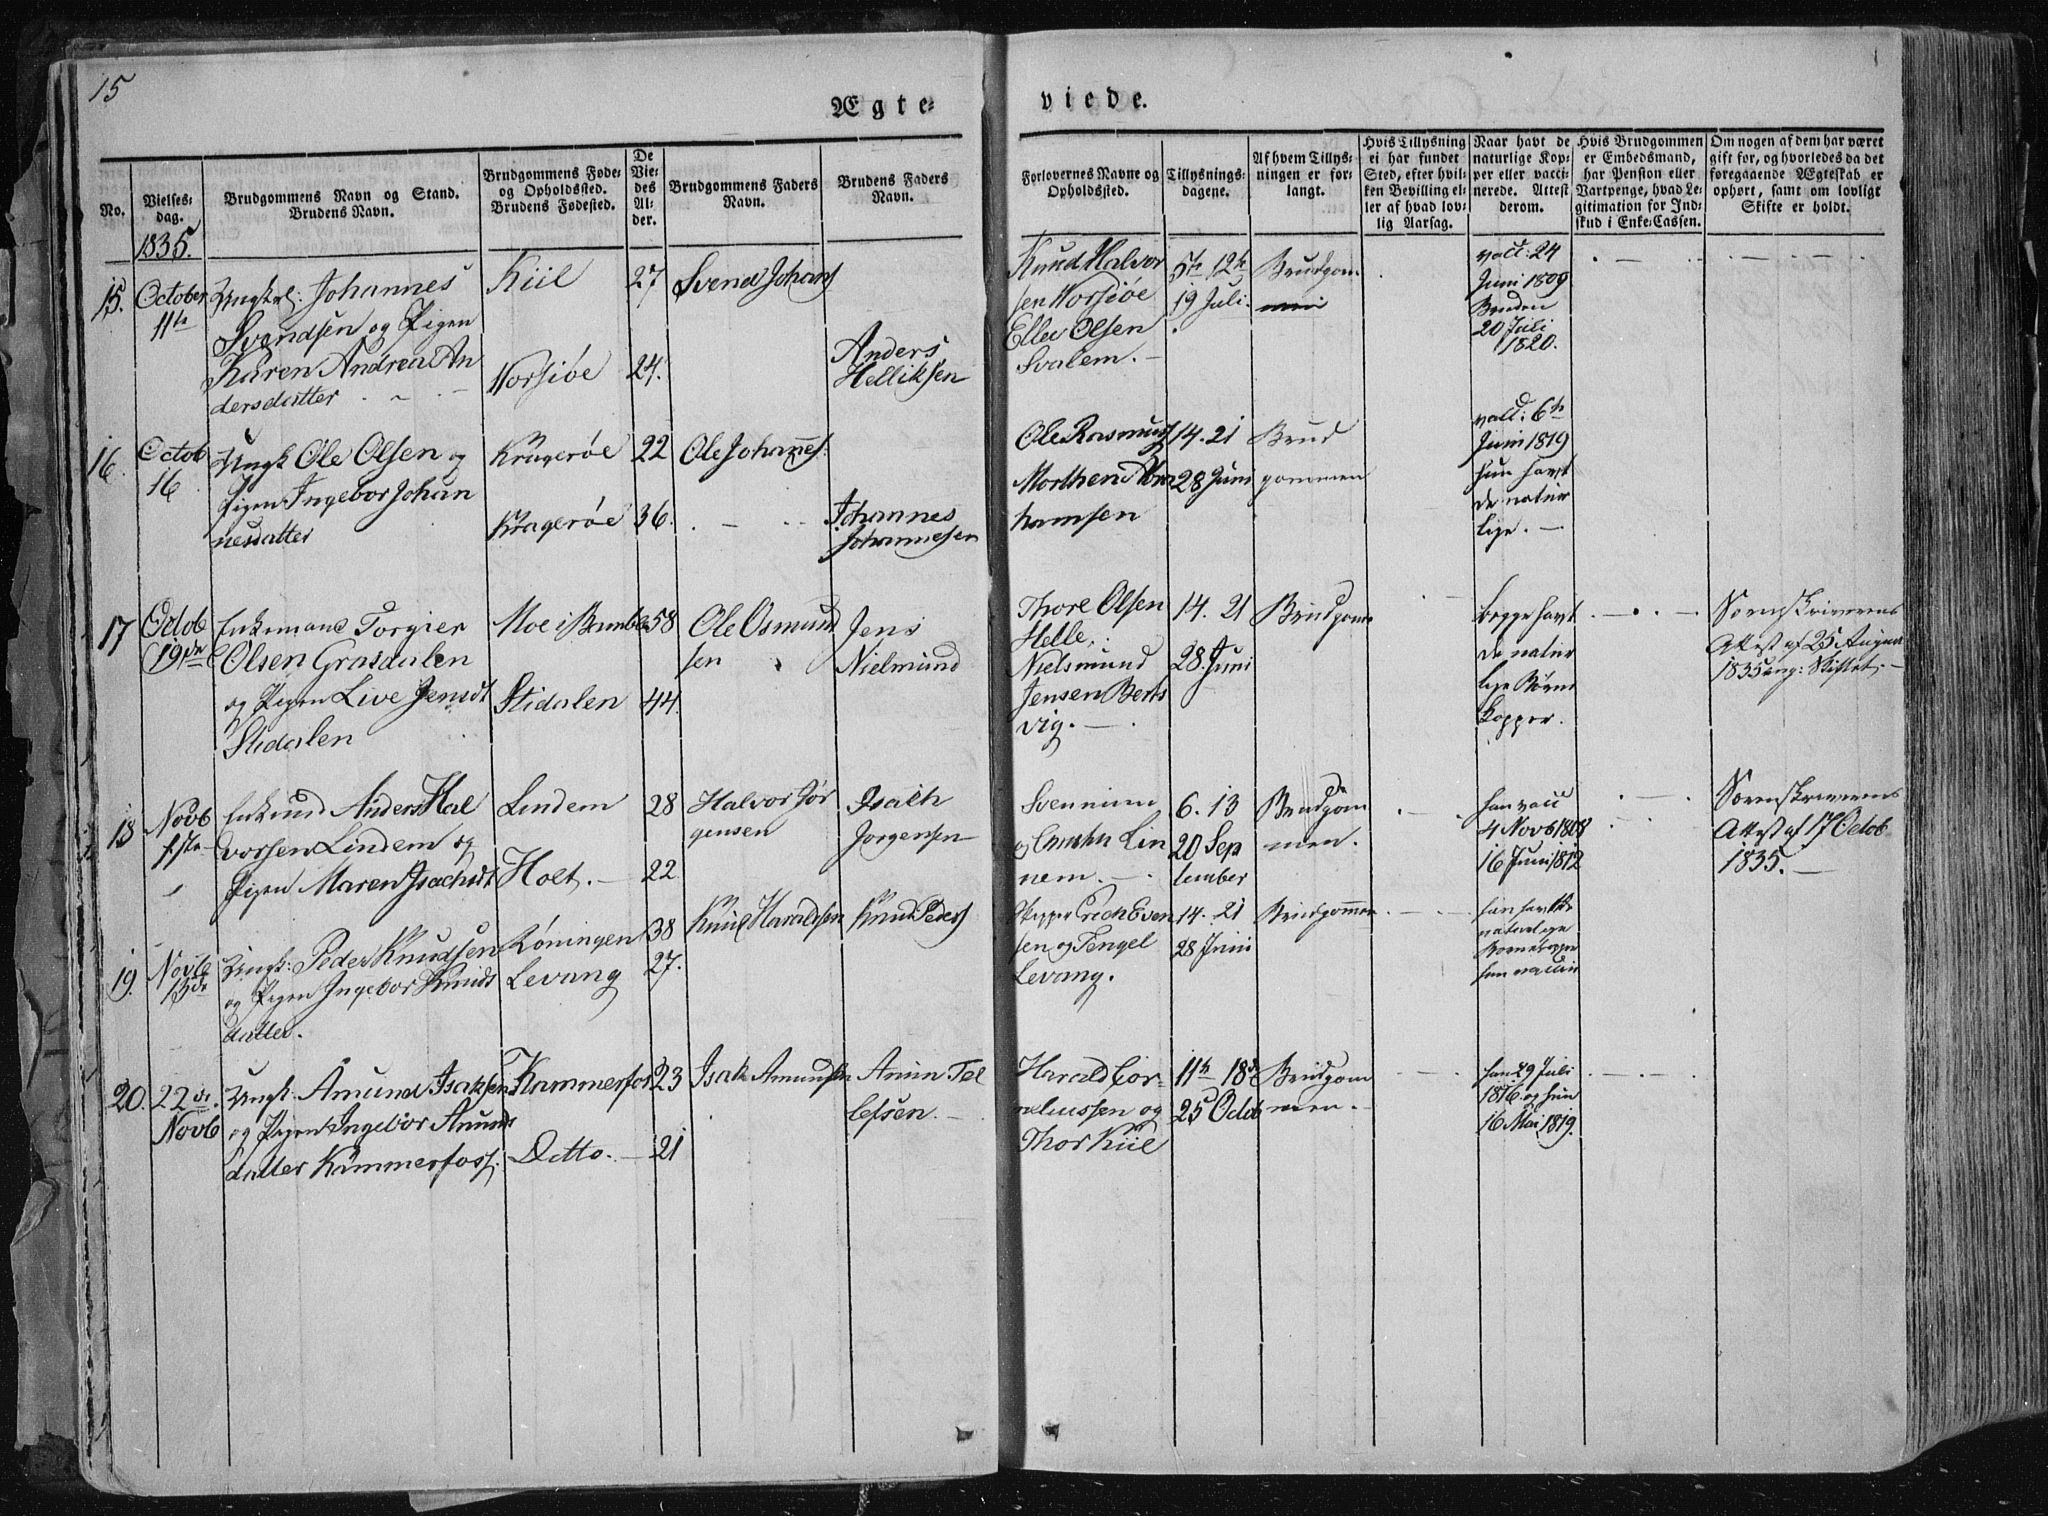 15
Ægte-
viede.
No.
Vielses-
dag.
1835.
Brudgommens Navn og Stand.
Brudens Navn.
Brudgommens Føde-
og Opholdssted.
Brudens Fødested.
De
Vie-
des
Al-
der.
Brudgommens Faders
Navn.
Brudens Faders
Navn.
Forlovernes Navne og
Opholdssted.
Tillysnings-
dagene.
Af hvem Tillys-
ningen er for-
langt.
Hvis Tillysning
ei har fundet
Sted, efter hvil-
ken Bevilling el-
ler af hvad lov-
lig Aarsag.
Naar havt de
naturlige Kop-
per eller vacci-
nerede. Attest
derom.
Hvis Brudgommen
er Embedsmand,
har Pension eller
Vartpenge, hvad Le-
gitimation for Ind-
skud i Enke-Cassen.
Om nogen af dem har været
gift for, og hvorledes da det
foregaaende Ægteskab er
ophørt, samt om lovligt
Skifte er holdt.
15.
October
11te
Ungk: Johannes
Svendsen og Pigen
Karen Andrea An
dersdatter
Kiil
Vorsiøe
27
24.
Svend Johans
Anders
Helliksen
Knud Halvor
sen Vorsiøe
Ellev Olsen
Svalem.
5te 12te
19 Juli.
Brudgom
men
vacc: 24
Juni 1809
Bruden
20 Juli
1820.
16.
Octob
16
Ungk Ole Olsen og
Pigen Ingebor Johan
nesdatter
Kragerøe
Kragerøe
22
36.
Ole Johannes:
Johannes
Johannesen
Ole Rasmus
Morthen Abra
hamsen
14. 21
28 Juni
Brud
gommen
vacc: 6te
Juni 1819
hun havt
de natur
lige.
17
Octob
19de
Enkemand Torgier
Olsen Grasdalen
og Pigen Live Jensdt
Stidalen
Moe i Bamble
Stidalen
58
44.
Ole Osmund
sen
Jens
Nielmund
Thore Olsen
Helle,
Nielsmund
Jensen Berts
vig.
14. 21
28. Juni
Brudgom
begge havt
de natur
lige Børne
kopper.
Sorenskriverens
Attest af 25 August
1835 ang: Skiftet.
18
Novb
1ste
Enkemd Anders Hal
vorsen Lindem og
Pigen Maren Isachsdt
Lindem
Holt.
28
22
Halvor Jør
gensen
Isach
Jørgensen
og Lin
nem.
6. 13
20 Sep
tember
Brudgom
men.
han vacc
4 Novb 1808
16 Juni 1812
Sorenskriverens
Attest af 17 Octob
1835.
19.
Novb
13de
Ungk: Peder Knudsen
og Pigen Ingebor Knuds
datter.
Røningen
Levang
38
27.
Knud Haraldsen
Knud Peders
Skipper Erich Even
sen og Tengel
Levang.
14. 21
28 Juni
Brudgommen
han havt de
naturlige
Børnekopper
hun vaccin
20.
22de
Novb
Ungk: Amund Isaksen
og Pigen Ingebor Anund
datter Kammerfoss.
Kammerfos
Ditto.
23
21
Isak Amundsen
Anun Tel
lefsen.
Harald Cor-
neliussen og
Thor Kiil
11te 18de
25 Octob
Brudgom
men.
han 29 Juli
1816 og hun
16 Mai 1819.